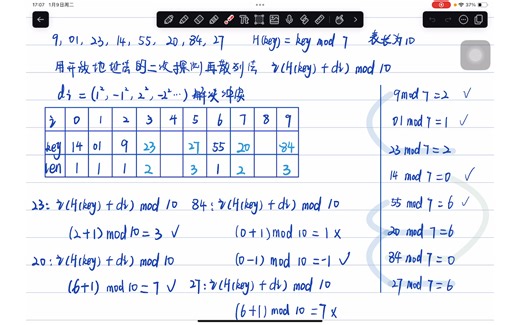 17:07 1月9日周二
37%
9, 01, 23, 14, 55, 20, 84, 27 H(key) = key mod 7 表长为10
用开放地址法的二次探测再散列法 (H(key) + di) mod 10
di = (1², -1², 2², -2² ...) 解决冲突
i 0 1 2 3 4 5 6 7 8 9
key 14 01 9 23 27 55 20 84
len 1 1 1 2 3 1 2 3
9 mod 7 = 2 ✓
01 mod 7 = 1 ✓
23 mod 7 = 2
14 mod 7 = 0 ✓
55 mod 7 = 6 ✓
20 mod 7 = 6
84 mod 7 = 0
27 mod 7 = 6
23: (H(key) + di) mod 10 84: (H(key) + di) mod 10
(2+1) mod 10 = 3 ✓ (0+1) mod 10 = 1 ×
20: (H(key) + di) mod 10 (0-1) mod 10 = -1 ✓
(6+1) mod 10 = 7 ✓ 27: (H(key) + di) mod 10
(6+1) mod 10 = 7 ×